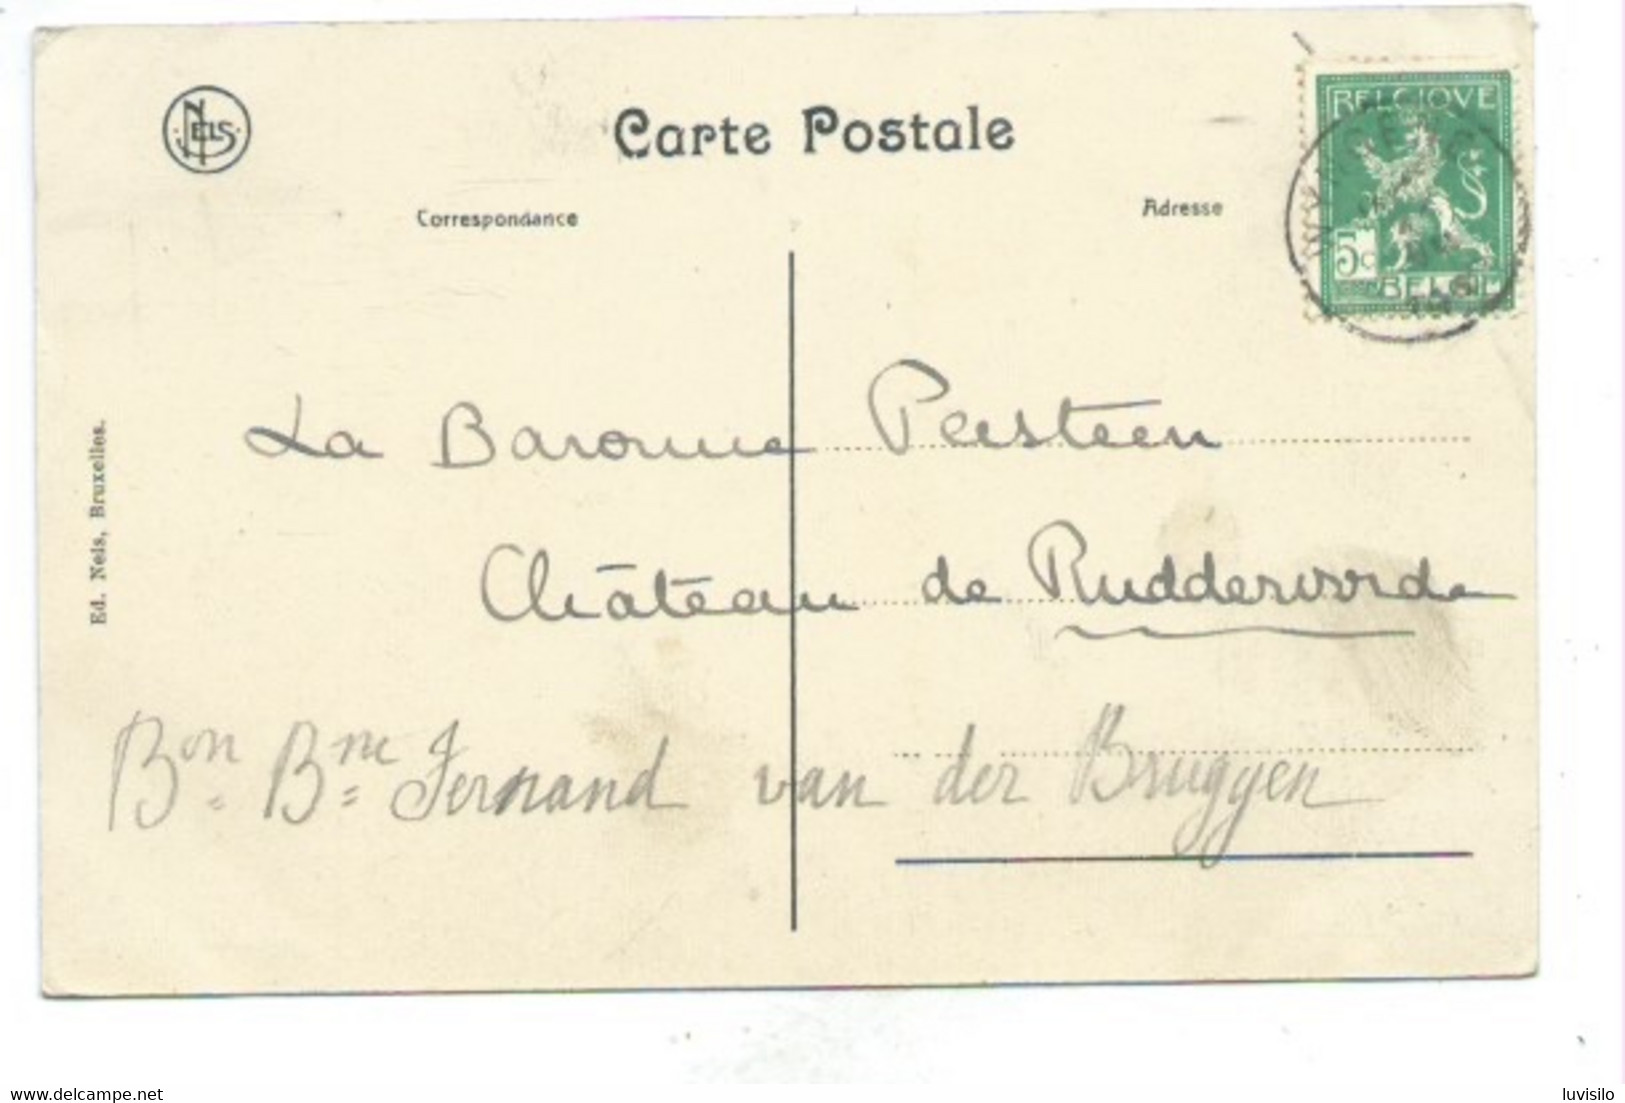 NELS
Carte Postale
Correspondance
Adresse
BELGIQVE
5c
BELGIË
Ed. Nels, Bruxelles.
La Baronne Peesteen
Château de Ruddervoorde
Bon Bne Fernand van der Bruggen
delcampe.net
luvisilo